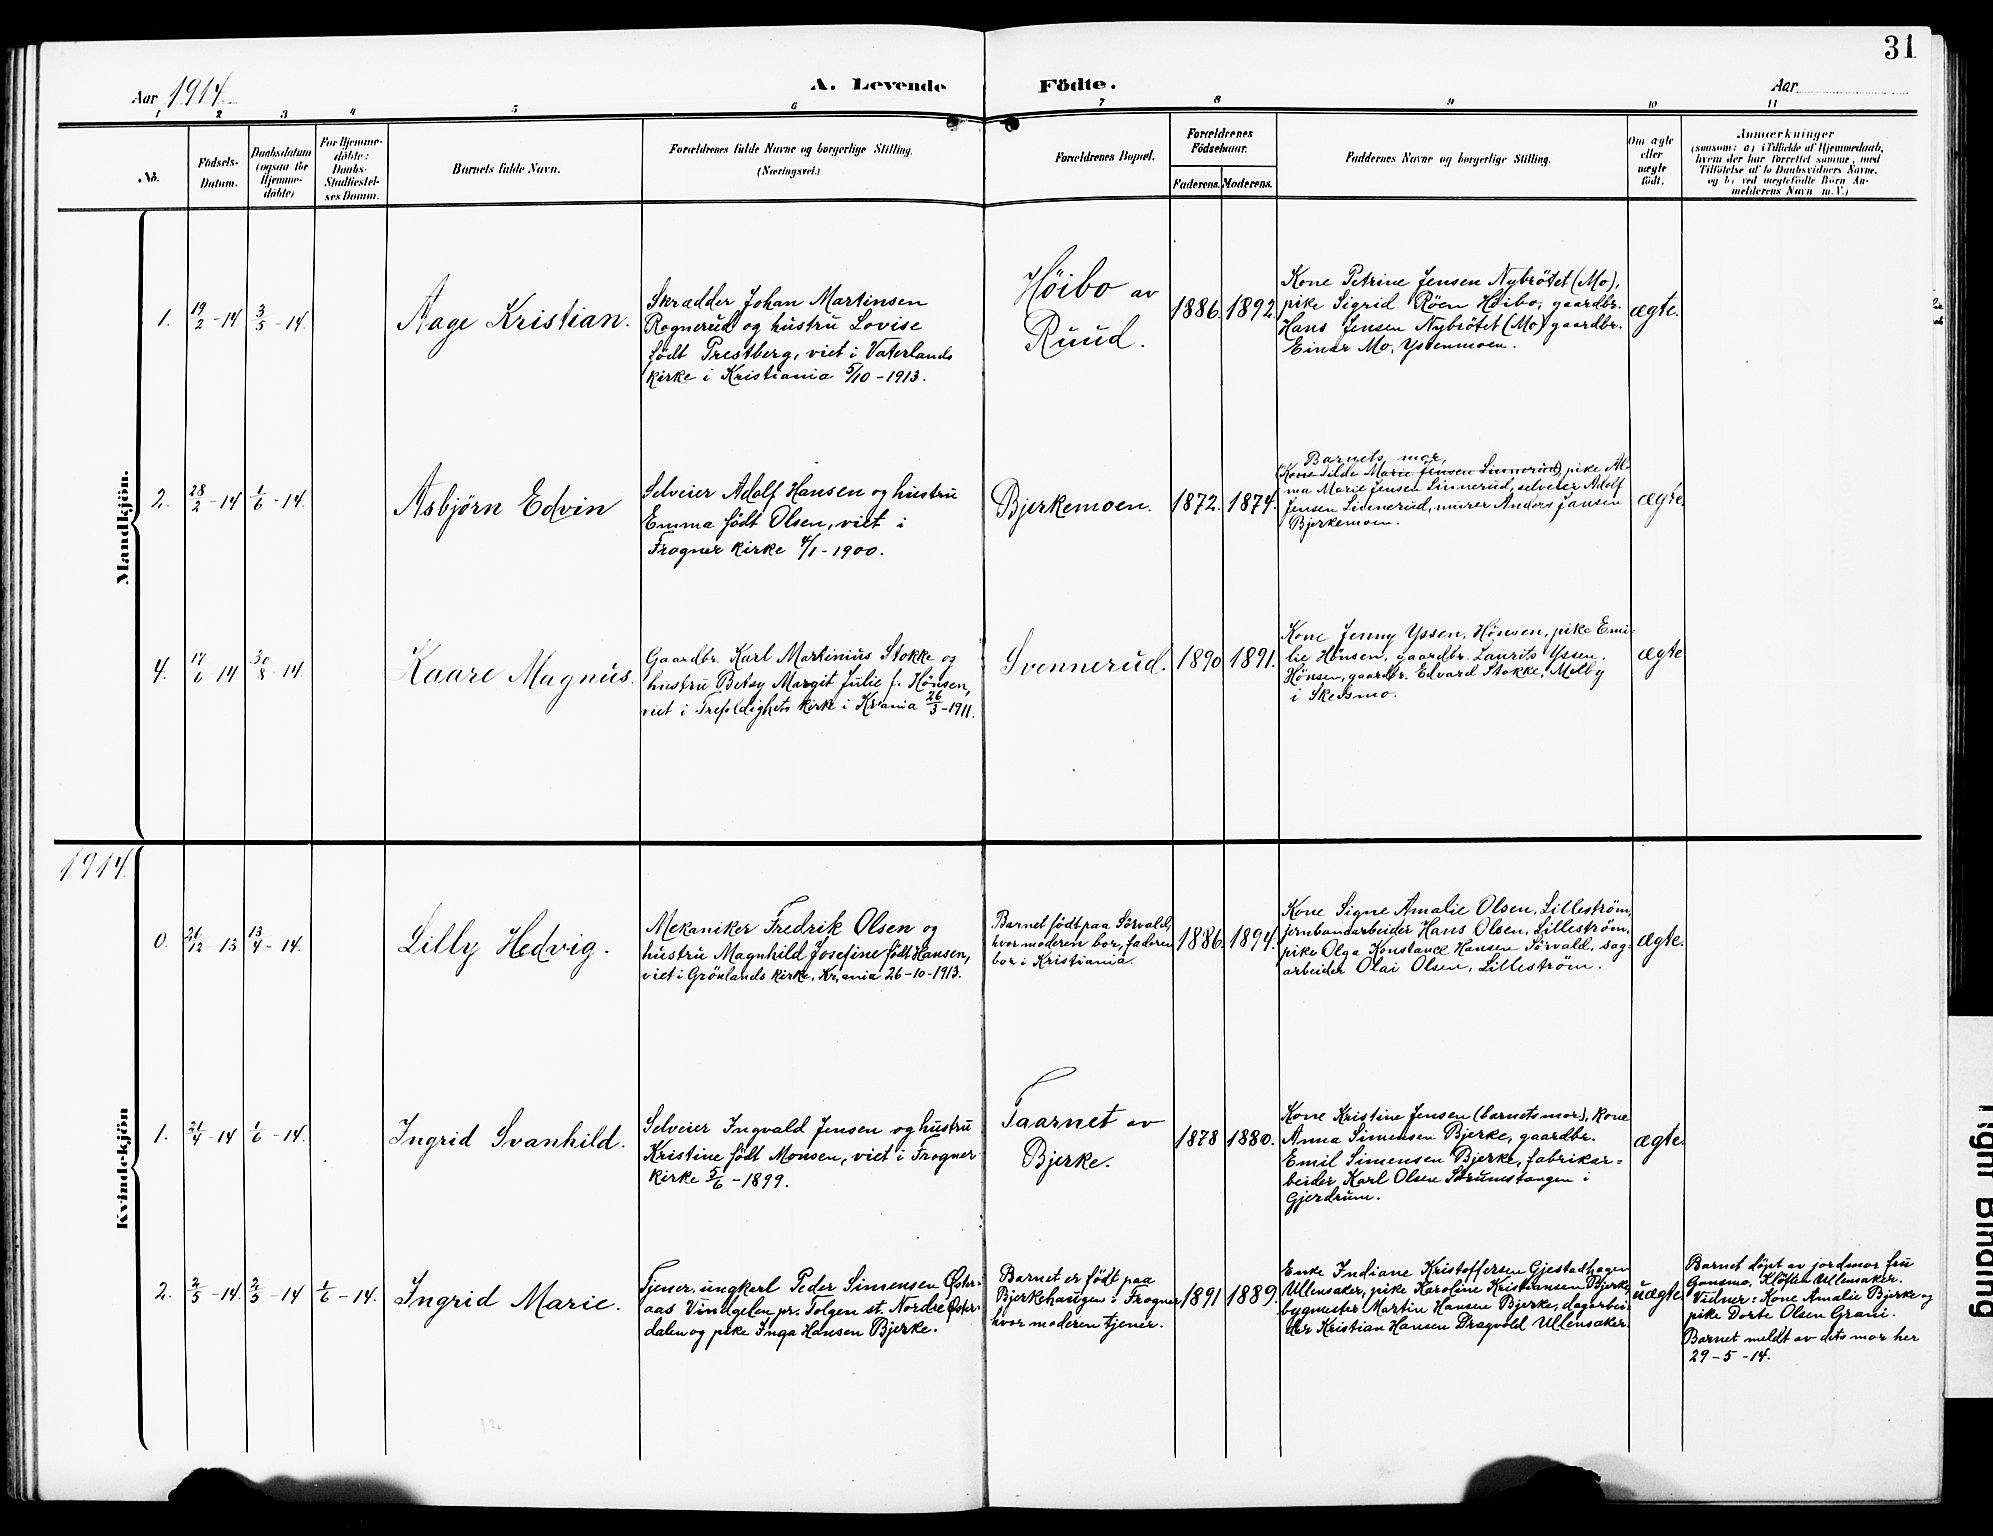 31
Aar 1914.
A. Levende Födte.
Aar
1 2 3 4 5 6 7 8 9 10 11
No.
Födsels-
Datum.
Daabsdatum
(ogsaa for
Hjemme-
döbte)
For Hjemme-
döbte:
Daabs-
Stadfæstel-
ses Datum.
Barnets fulde Navn.
Forældrenes fulde Navne og borgerlige Stilling.
(Næringsvei.)
Forældrenes Bopæl.
Forældrenes
Födselsaar.
Faderens. Moderens.
Faddernes Navne og borgerlige Stilling.
Om ægte
eller
uægte
födt.
Anmærkninger
(saasom: a) i Tilfælde af Hjemmedaab,
hvem der har forrettet samme, med
Tilföielse af to Daabsvidners Navne,
og b) ved uægtefödte Börn An-
melderens Navn m. V.)
Mandkjön.
1.
19/2 - 14
3/5 - 14.
Aage Kristian.
Skrædder Johan Martinsen
Rognerud og hustru Lovise
født Prestberg, viet i Vaterlands
kirke i Kristiania 5/10 - 1913.
Høibo av
Ruud.
1886. 1892.
Kone Petrine Jensen Nybrötet (Mo),
pike Sigrid Röen Høibo, gaardbr.
Hans Jensen Nybrötet (Mo) gaardbr.
Einar Mo, Ystenmoen.
ægte.
2.
28/2 - 14
1/6 - 14.
Asbjørn Edvin
Selveier Adolf Hansen og hustru
Emma født Olsen, viet i
Frogner kirke 4/1 - 1900.
Bjerkemoen.
1872. 1874.
Barnets mor,
(Kone Tilda Marie Jensen Linnerud), pike Al-
ma Marie Jensen Linnerud, selveier Adolf
Jensen Linnerud, murer Anders Jansen
Bjerkemoen.
ægte.
4.
17/6 - 14
30/8 - 14.
Kaare Magnus.
Gaardbr. Karl Martinius Stokke og
hustru Betsy Margit Julie f. Hönsen,
viet i Trefoldighets kirke i Kr.ania 26/3 - 1911.
Svennerud.
1890 1891.
Kone Jenny Yssen, Hönsen, pike Emi=
lie Hönsen, gaardbr. Laurits Yssen,
Hönsen, gaardbr. Edvard Stokke, Melby
i Skedsmo.
ægte
1914.
Kvindekjön
0.
26/12 - 13
13/4 - 14.
Lilly Hedvig.
Mekaniker Fredrik Olsen og
hustru Magnhild Josefine født Hansen,
viet i Grönlands kirke, Kr.ania 26-10-1913.
Barnet født paa Sörvald,
hvor moderen bor, faderen
bor i Kristiania.
1886. 1894.
Kone Signe Amalie Olsen, Lilleström,
jernbanearbeider Hans Olsen, Lilleström,
pike Olga Konstance Hansen Sörvald, sag-
arbeider Olai Olsen, Lilleström.
ægte.
1.
21/4 - 14
1/6 - 14.
Ingrid Svanhild.
Selveier Ingvald Jensen og hustru
Kristine født Monsen, viet i Frogner
kirke 5/6 - 1899.
Taarnet av
Bjerke.
1878 1880.
Kone Kristine Jensen (barnets mor), kone
Anna Simensen Bjerke, gaardbr.
Emil Simensen Bjerke, fabrikar=
beider Karl Olsen Strumstangen i
Gjerdrum.
ægte.
2.
2/5 - 14.
2/5 - 14
1/6 - 14.
Ingrid Marie.
Tjener, ungkarl Peder Simensen Øster-
aas Vindgelen pr. Tolgen st. Nordre Øster-
dalen og pike Inga Hansen Bjerke.
Barnet er født paa
Bjerkehaugen i Frogner
hvor moderen tjener.
1891 1889.
Enke Indiane Kristoffersen Gjestadhagen
Ullensaker, pike Karoline Kristiansen Bjerke,
bygmester Martin Hansen Bjerke, dagarbei-
der Kristian Hansen Dragvold Ullensaker.
uægte
Barnet døpt av jordmor fru
Gansmo, Kløften Ullensaker.
Vidner: Kone Amalie Bjerke og
pike Dorte Olsen Grani.
Barnet meldt av dets mor her
29 - 5 - 14.
Tight Binding